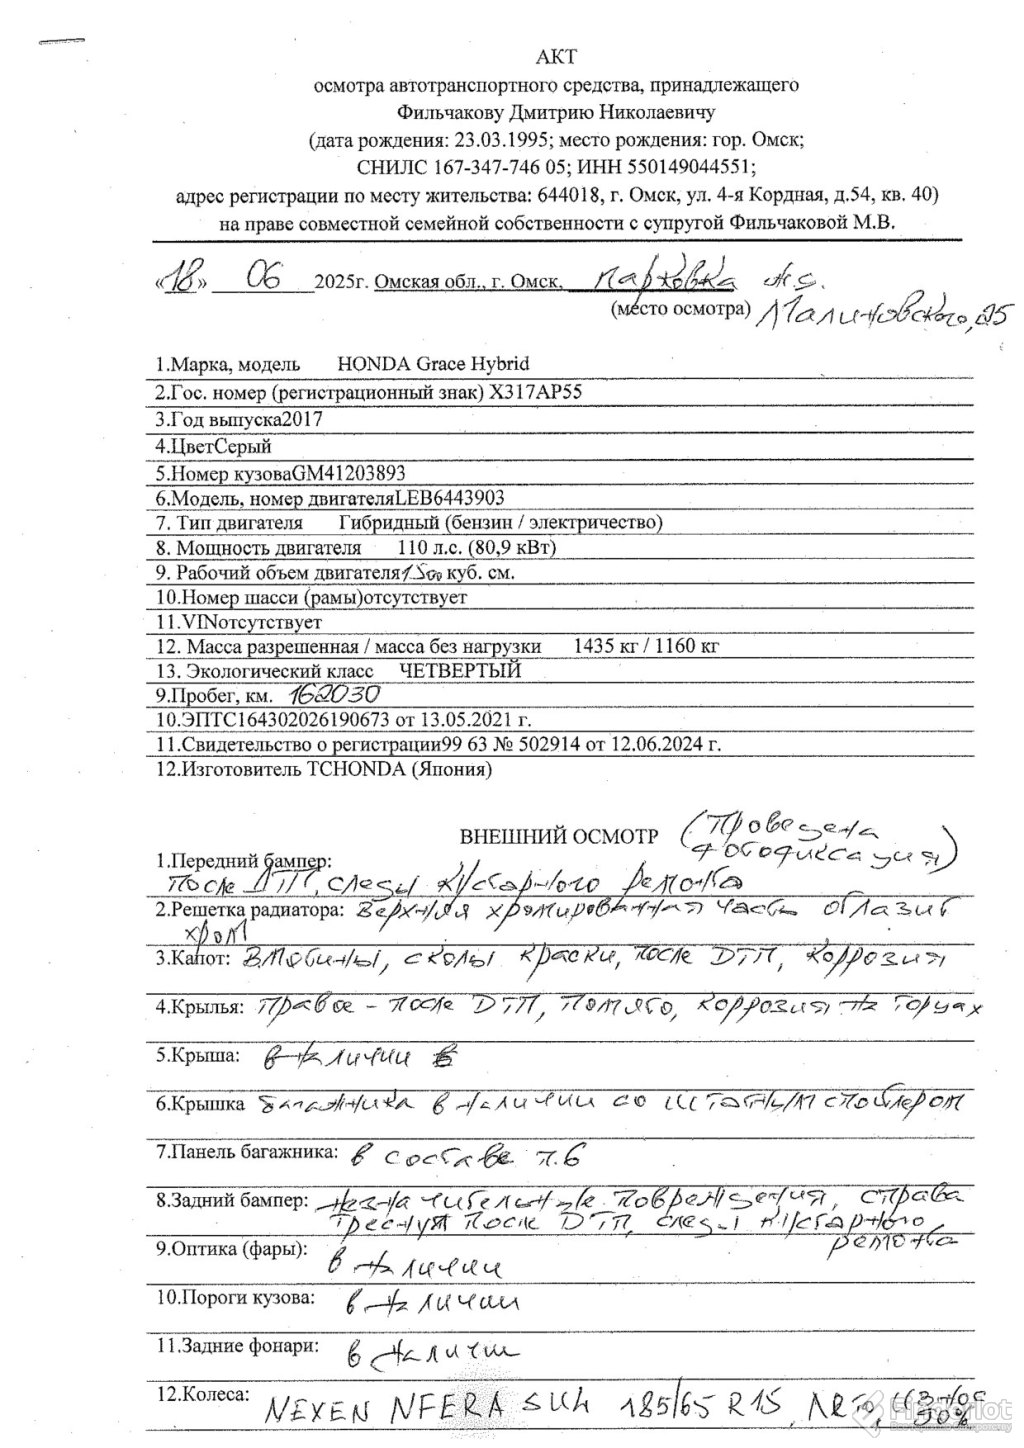 АКТ
осмотра автотранспортного средства, принадлежащего
Фильчакову Дмитрию Николаевичу
(дата рождения: 23.03.1995; место рождения: гор. Омск;
СНИЛС 167-347-746 05; ИНН 550149044551;
адрес регистрации по месту жительства: 644018, г. Омск, ул. 4-я Кордная, д.54, кв. 40)
на праве совместной семейной собственности с супругой Фильчаковой М.В.
«18» 06 2025г. Омская обл., г. Омск, парковка ж.д.
(место осмотра) Малиновского, 25
1.Марка, модель HONDA Grace Hybrid
2.Гос. номер (регистрационный знак) Х317АР55
3.Год выпуска2017
4.ЦветСерый
5.Номер кузоваGM41203893
6.Модель, номер двигателяLEB6443903
7. Тип двигателя Гибридный (бензин / электричество)
8. Мощность двигателя 110 л.с. (80,9 кВт)
9. Рабочий объем двигателя1500 куб. см.
10.Номер шасси (рамы)отсутствует
11.VINотсутствует
12. Масса разрешенная / масса без нагрузки 1435 кг / 1160 кг
13. Экологический класс ЧЕТВЕРТЫЙ
9.Пробег, км. 162030
10.ЭПТС164302026190673 от 13.05.2021 г.
11.Свидетельство о регистрации99 63 № 502914 от 12.06.2024 г.
12.Изготовитель ТСHONDA (Япония)
ВНЕШНИЙ ОСМОТР (Проведена
фотофиксация)
1.Передний бампер:
после ДТП, следы кустарного ремонта
2.Решетка радиатора: Верхняя хромированная часть облазит
хром
3.Капот: Вмятины, сколы краски, после ДТП, коррозия
4.Крылья: Правое - после ДТП, помято, коррозия на торцах
5.Крыша: в наличии
6.Крышка багажника в наличии со штатным спойлером
7.Панель багажника: в составе п.6
8.Задний бампер: незначительные повреждения, справа
треснут после ДТП, следы кустарного
ремонта
9.Оптика (фары): в наличии
10.Пороги кузова: в наличии
11.Задние фонари: в наличии
12.Колеса: NEXEN NFERA SU4 185/65 R15, лето, износ
50%